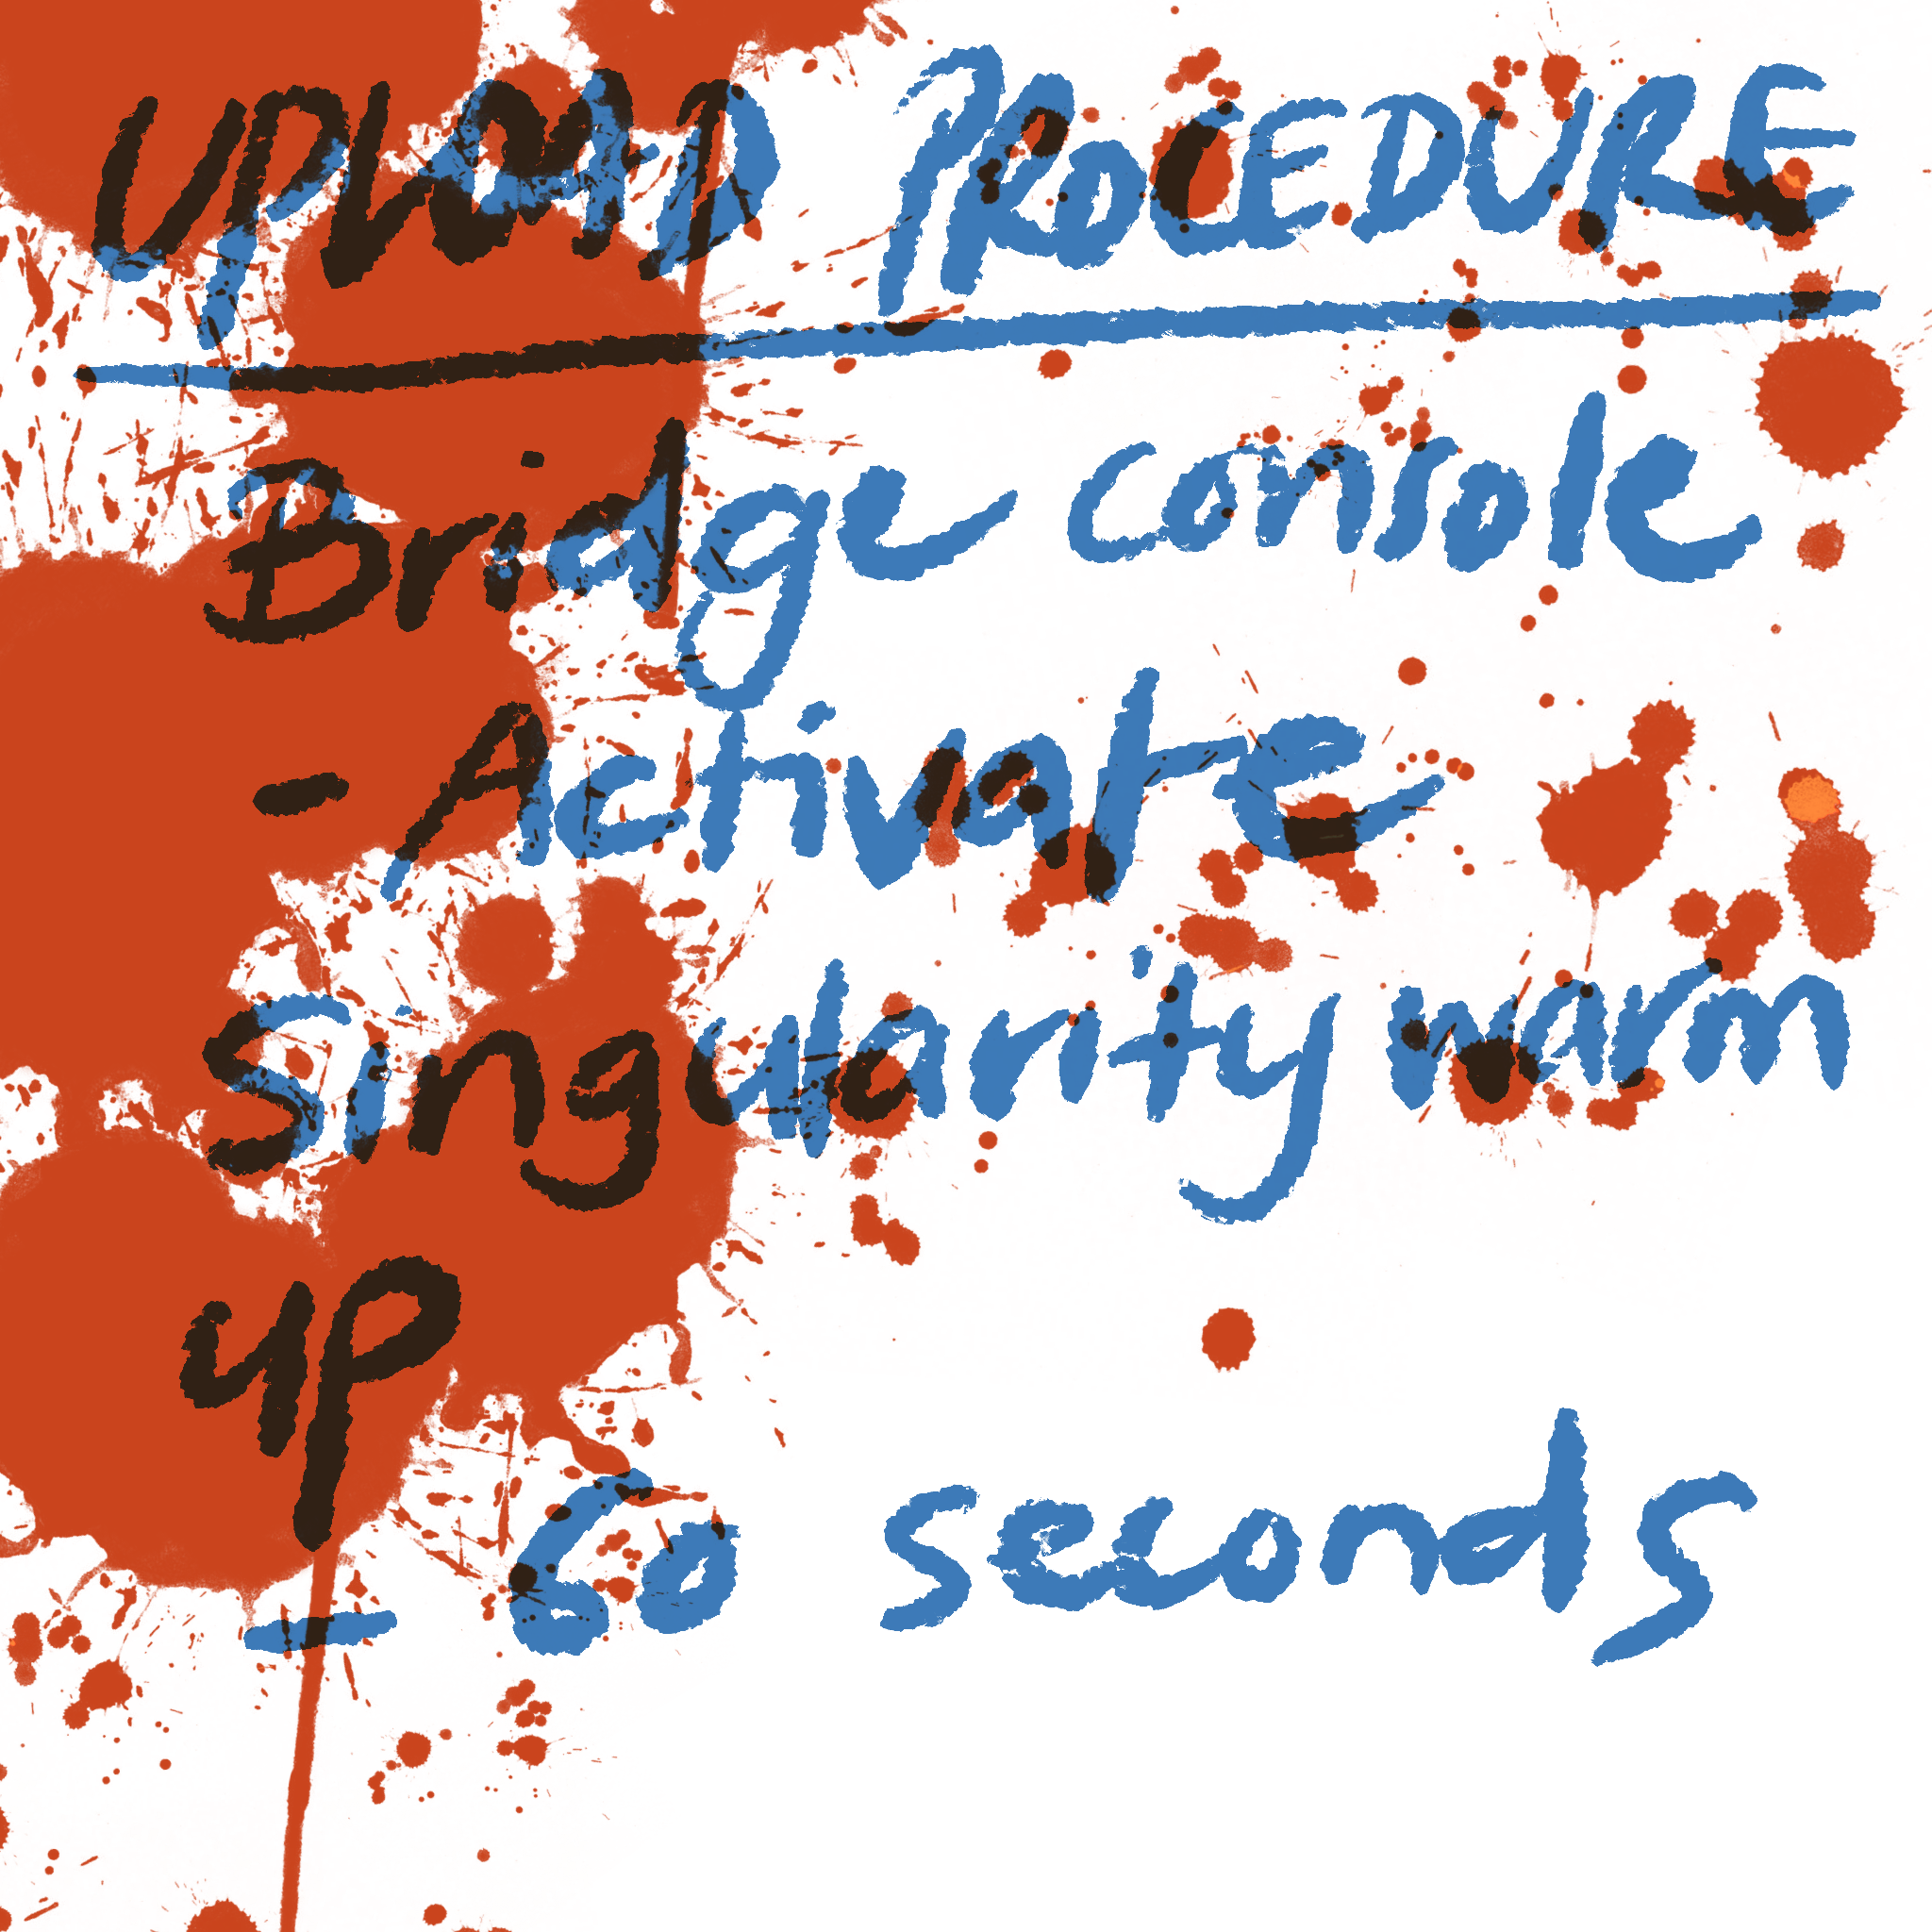 UPLOAD PROCEDURE
Bridge console
- Activate
Singularity warm
up
- 60 seconds